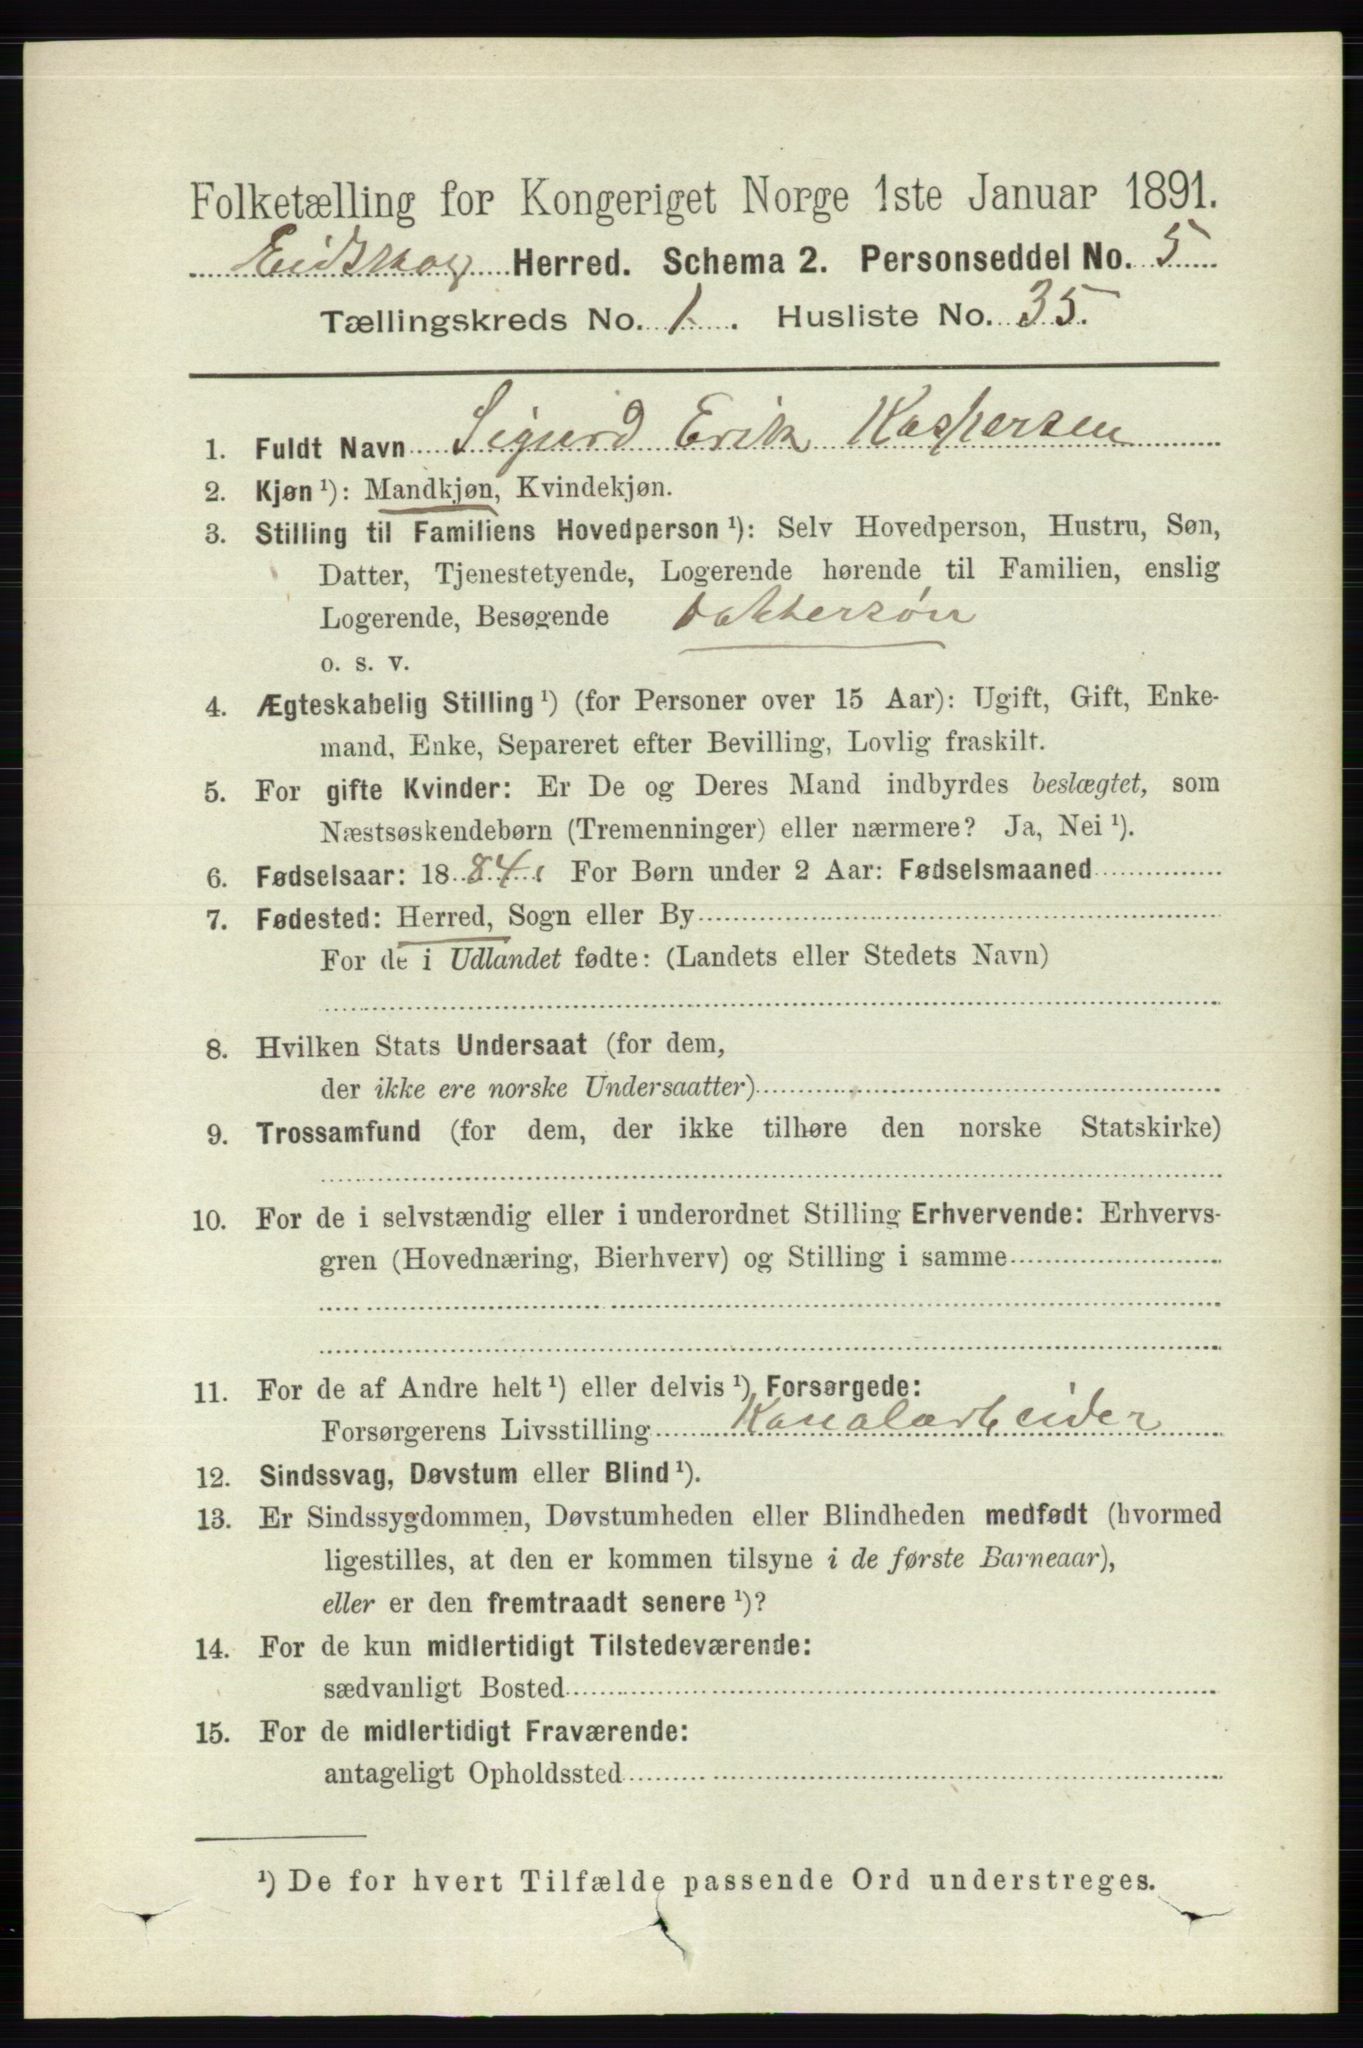 Folketælling for Kongeriget Norge 1ste Januar 1891.
Eidskog Herred. Schema 2. Personseddel No. 5
Tællingskreds No. 1. Husliste No. 35.
1. Fuldt Navn Sigurd Erik Kaspersen
2. Kjøn ¹): Mandkjøn, Kvindekjøn.
3. Stilling til Familiens Hovedperson ¹): Selv Hovedperson, Hustru, Søn,
Datter, Tjenestetyende, Logerende hørende til Familien, enslig
Logerende, Besøgende Dattersøn
o. s. v.
4. Ægteskabelig Stilling ¹) (for Personer over 15 Aar): Ugift, Gift, Enke-
mand, Enke, Separeret efter Bevilling, Lovlig fraskilt.
5. For gifte Kvinder: Er De og Deres Mand indbyrdes beslægtet, som
Næstsøskendebørn (Tremenninger) eller nærmere? Ja, Nei ¹).
6. Fødselsaar: 1884. For Børn under 2 Aar: Fødselsmaaned
7. Fødested: Herred, Sogn eller By
For de i Udlandet fødte: (Landets eller Stedets Navn)
8. Hvilken Stats Undersaat (for dem,
der ikke ere norske Undersaatter)
9. Trossamfund (for dem, der ikke tilhøre den norske Statskirke)
10. For de i selvstændig eller i underordnet Stilling Erhvervende: Erhvervs-
gren (Hovednæring, Bierhverv) og Stilling i samme
11. For de af Andre helt ¹) eller delvis ¹) Forsørgede:
Forsørgerens Livsstilling Kanalarbeider
12. Sindssvag, Døvstum eller Blind ¹).
13. Er Sindssygdommen, Døvstumheden eller Blindheden medfødt (hvormed
ligestilles, at den er kommen tilsyne i de første Barneaar),
eller er den fremtraadt senere ¹)?
14. For de kun midlertidigt Tilstedeværende:
sædvanligt Bosted
15. For de midlertidigt Fraværende:
antageligt Opholdssted
¹) De for hvert Tilfælde passende Ord understreges.